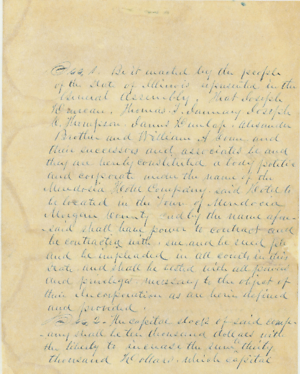 Sec 1. Be it enacted by the people
of the State of Illinois represented in the
General Assembly, That Joseph
Duncan, Thomas T. January, Joseph
R. Thompson, David Dunlap, Alexander
and William A. and
their successors and associates be and
they are hereby constituted a body politic
and corporate under the name of the
Hotel Company, said Hotel to
be located in the Town of
Morgan County and by the name afore-
said shall have power to contract and
be contracted with, sue and be sued, plead
and be impleaded in all courts in this
State, and shall be vested with all powers
and privileges necessary to the object of
their incorporation as are herein defined
and provided.
Sec 2. The capital stock of said comp-
any shall be ten thousand dollars with
the liberty to increase the sum thirty
thousand Dollars, which capital